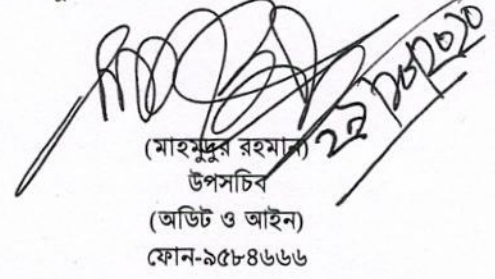 ২৯/১০/২০২০
(মাহমুদুর রহমান)
উপসচিব
(অডিট ও আইন)
ফোন-৯৫৮৪৬৬৬